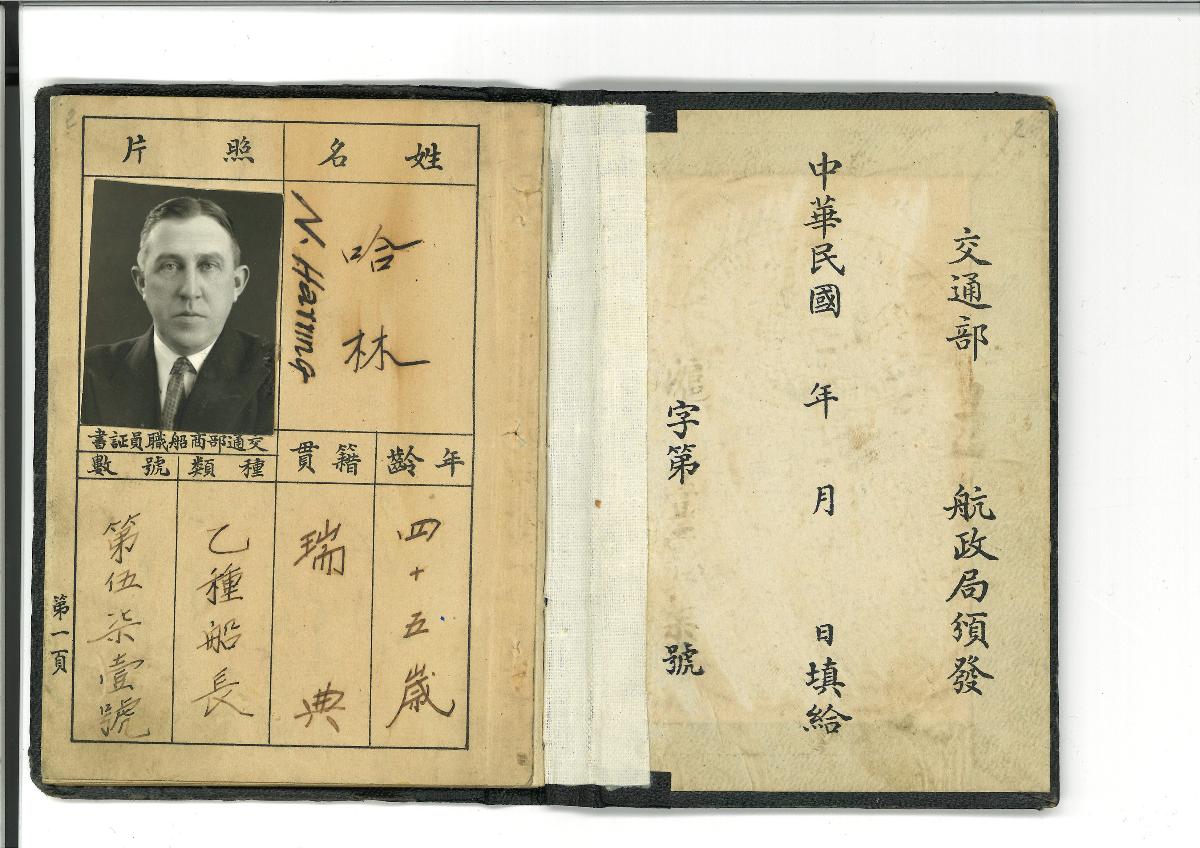 交通部 航政局頒發
中華民國 年 月 日填給
字第 號
姓名
哈林
N. Harring
照片
年齡
四十五歲
籍貫
瑞典
交通部商船職員証書
種類
乙種船長
號數
第伍柒壹號
第一頁